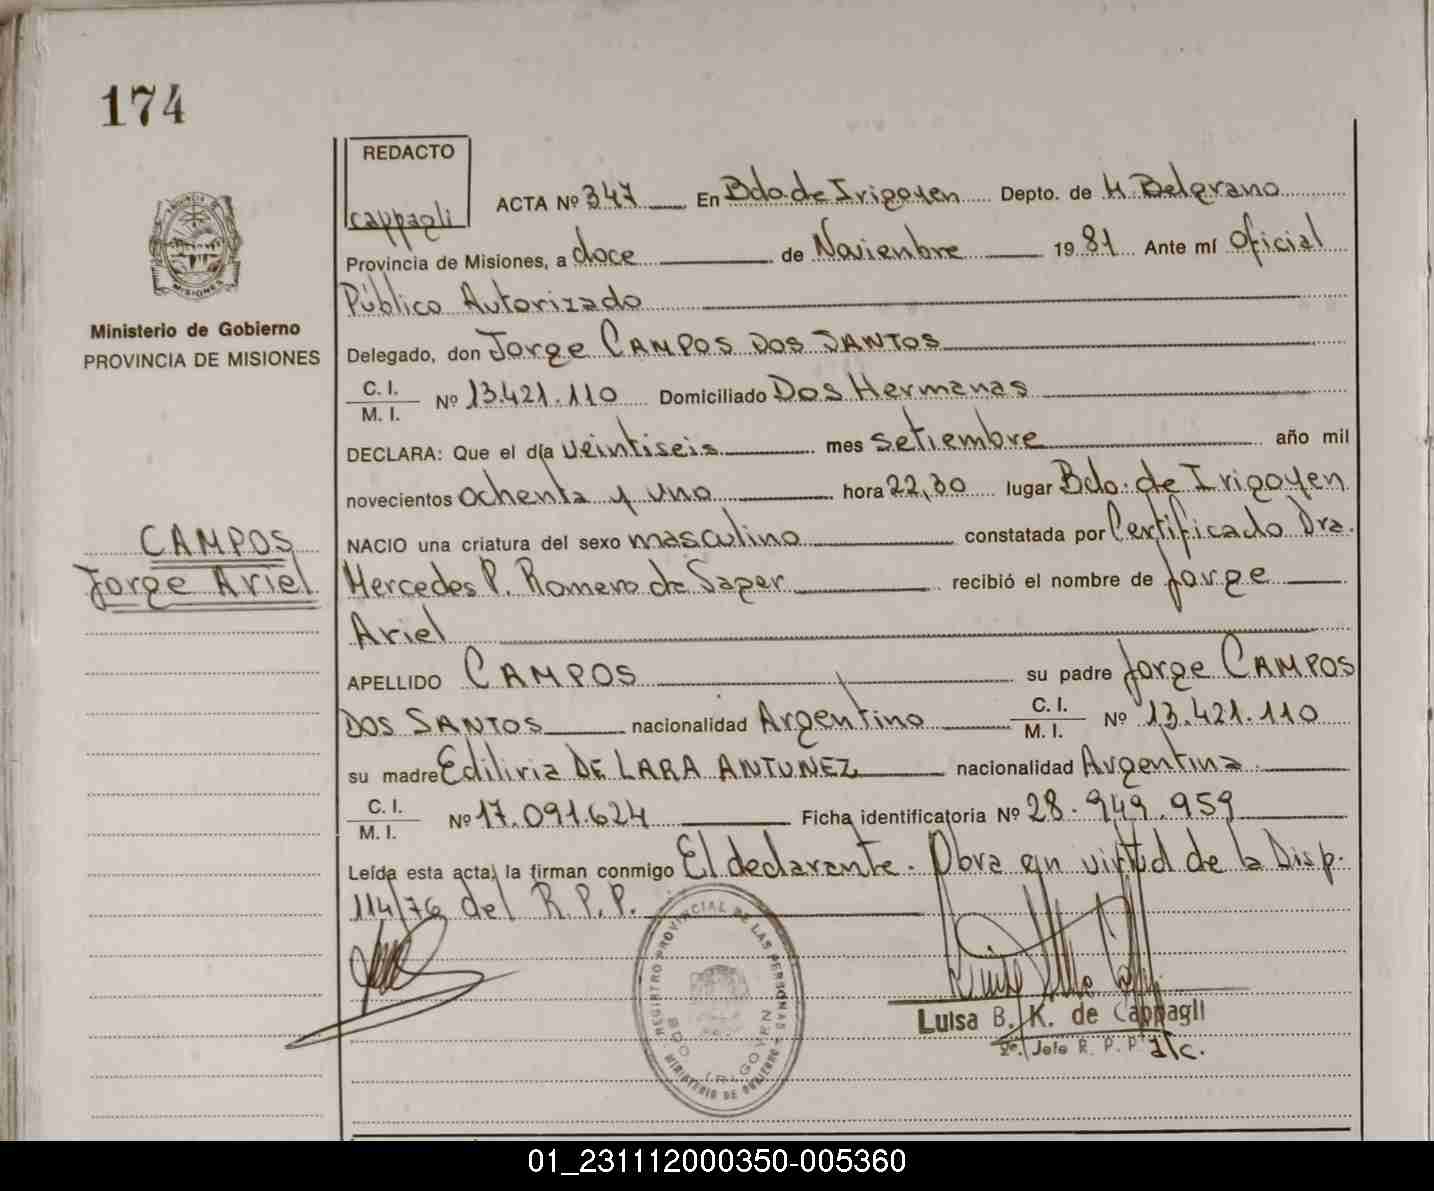 174
REDACTO
cappagli
ACTA Nº 347 En Bdo. de Irigoyen Depto. de M. Belgrano
Provincia de Misiones, a doce de Noviembre 19 81 Ante mí Oficial
Público Autorizado
Delegado, don Jorge CAMPOS DOS SANTOS
C. I.
M. I.
Nº 13.421.110 Domiciliado Dos Hermanas
DECLARA: Que el día veintiseis mes setiembre año mil
novecientos ochenta y uno hora 22,30 lugar Bdo. de Irigoyen
NACIO una criatura del sexo masculino constatada por Certificado Dra.
Mercedes P. Romero de Saper recibió el nombre de Jorge
Ariel
APELLIDO CAMPOS su padre Jorge CAMPOS
DOS SANTOS nacionalidad Argentino C. I. M. I. Nº 13.421.110
su madre Ediliria DE LARA ANTUNEZ nacionalidad Argentina.
C. I.
M. I.
Nº 17.091.624 Ficha identificatoria Nº 28.949.959
Leída esta acta, la firman conmigo El declarante. Obra en virtud de la Disp.
114/76 del R.P.P.
MISIONES
Ministerio de Gobierno
PROVINCIA DE MISIONES
CAMPOS
Jorge Ariel
REGISTRO PROVINCIAL DE LAS PERSONAS
BDO IRIGOYEN
MINISTERIO DE GOBIERNO
Luisa B. K. de Cappagli
2º. Jefe R. P. P. a/c.
01_231112000350-005360